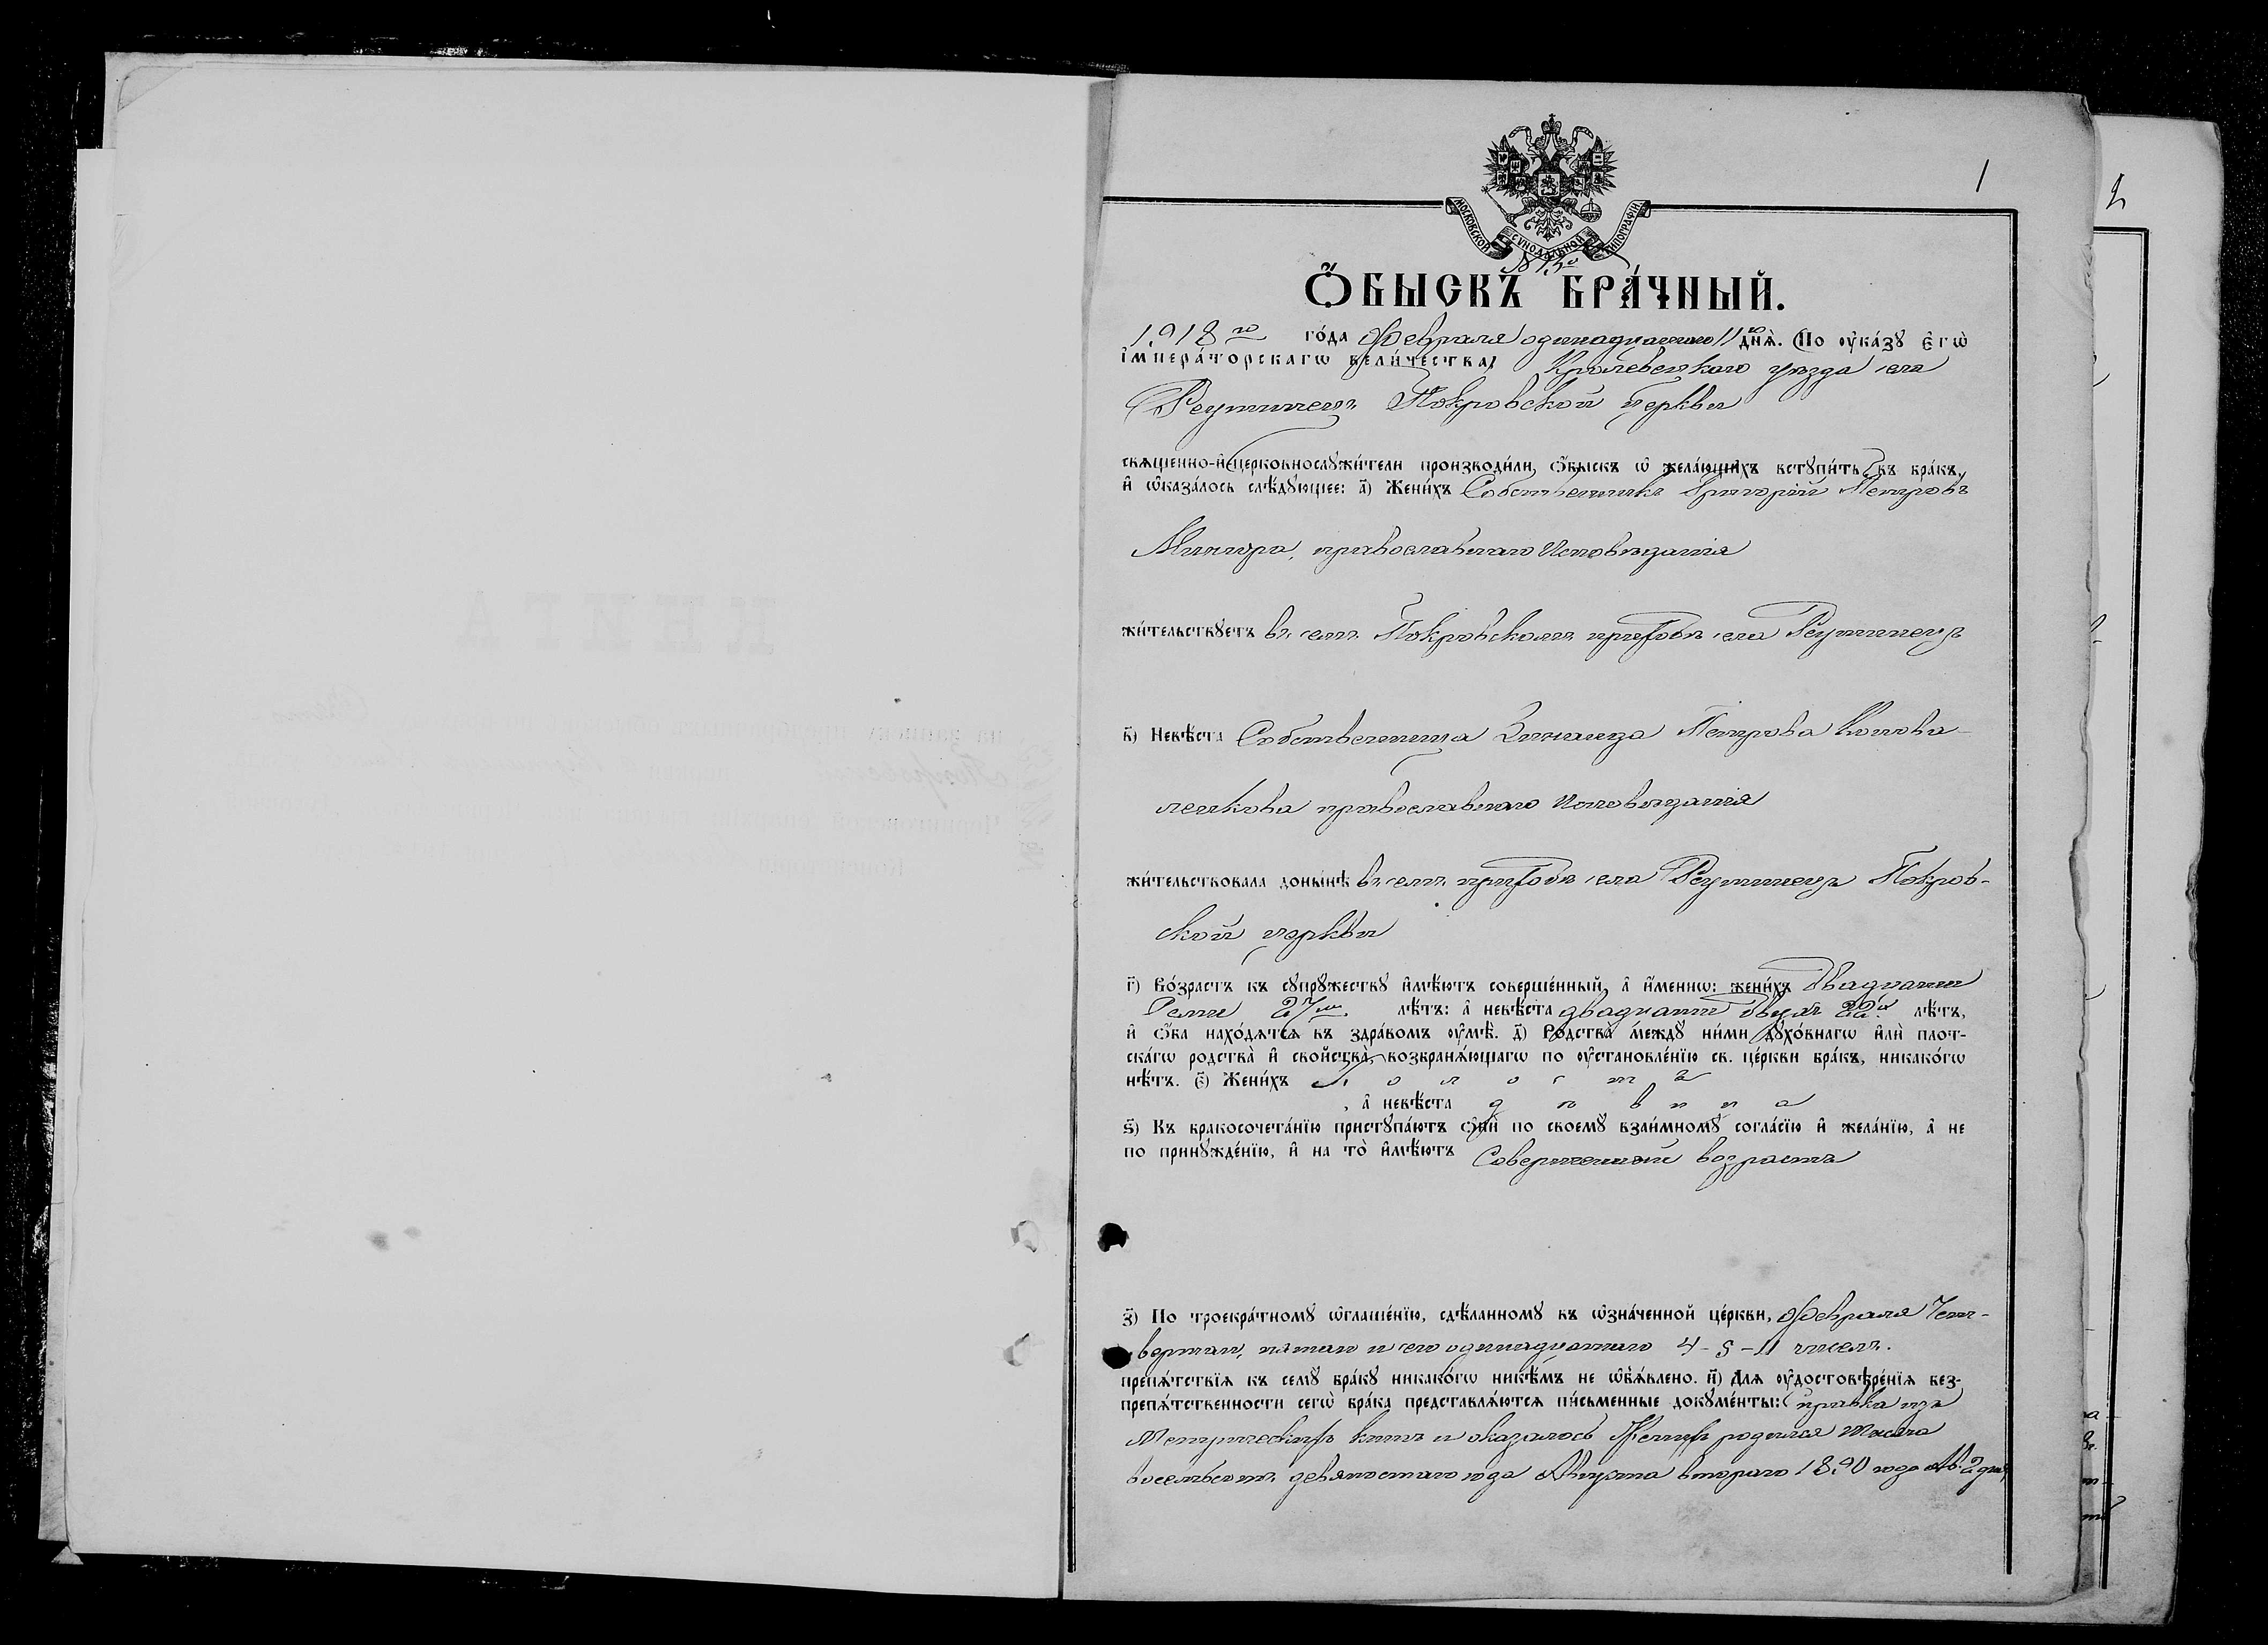 1
2
МОСКОВСКОЙ СѴНОДАЛЬНОЙ ТИПОГРАФІИ
№ 1й
Ѻ҆БЫСКЪ БРА́ЧНЫЙ.
1918 го го́да Февраля одинадцатаго 11 го днѧ̀. По ᲂу҆ка́зꙋ Є҆гѡ̀
І҆мпера́торскагѡ вели́чества, Кролевецкаго уѣзда села
Реутинецъ Покровской церкви
сващенно-и҆ церковнослꙋжи́тели производи́ли, ѻ҆́быскъ ѡ҆ жела́ющихъ встꙋпи́ть въ бра́къ,
и҆ ѡ҆каза́лось слѣ́дꙋющее: а҃) Жени́хъ Собственникъ Григорій Петровъ
православнаго Исповѣданія
жи́тельствꙋетъ въ семъ Покровскомъ приходѣ села Реутинецъ
в҃) Невѣ́ста Собственница Зинаида Петрова Конова-
ленкова православнаго Исповѣданія
жи́тельствовала доны́нѣ въ семъ приходѣ села Реутинецъ Покров-
ской церкви
г҃) Во́зрастъ къ сꙋпрꙋ́жествꙋ и҆мѣ́ютъ соверше́нный, а҆ и҆́меннѡ: жени́хъ двадцати
семи 27ми лѣ́тъ: а҆ невѣ́ста двадцати двухъ 22хъ лѣ́тъ,
и҆ ѻ҆́ба нахо́дѧтсѧ въ здра́вомъ ᲂу҆мѣ̀. д҃) Родства̀ ме́ждꙋ ни́ми дꙋхо́внагѡ и҆лѝ плот-
ска́гѡ родства̀ и҆ сво́йства̀, возбранѧ́ющагѡ по ᲂу҆становле́нїю св. це́ркви бра́къ, никако́гѡ
нѣ́тъ. є҃) Жени́хъ х о л о с т ъ
, а҆ невѣ́ста д ѣ в и ц а
ѕ҃) Къ бракосочета́нїю пристꙋпа́ютъ ѻ҆нѝ по своемꙋ̀ взаи́мномꙋ согла́сїю и҆ жела́нїю, а҆ не
по принꙋжде́нїю, и҆ на то̀ и҆мѣ́ютъ Совершенный возрастъ
з҃) По троекра́тномꙋ ѡ҆глаше́нїю, сдѣ́ланномꙋ въ ѡ҆зна́ченной це́ркви, Февраля Чет-
вертаго, пятаго и сего одинадцатаго 4-5-11 чиселъ.
препѧ́тствїѧ къ семꙋ̀ бра́кꙋ никако́гѡ никѣ́мъ не ѡ҆б̾ѧ́влено. и҃) Длѧ ᲂу҆достовѣре́нїѧ без-
препѧ́тственности сегѡ̀ бра́ка представлѧ́ютсѧ пи́сьменные докꙋме́нты: Справка изъ
Метрическихъ книгъ и оказалось Женихъ родился тысяча
восемьсотъ девяностаго года Августа второго 1890 года Ав. 2 дня